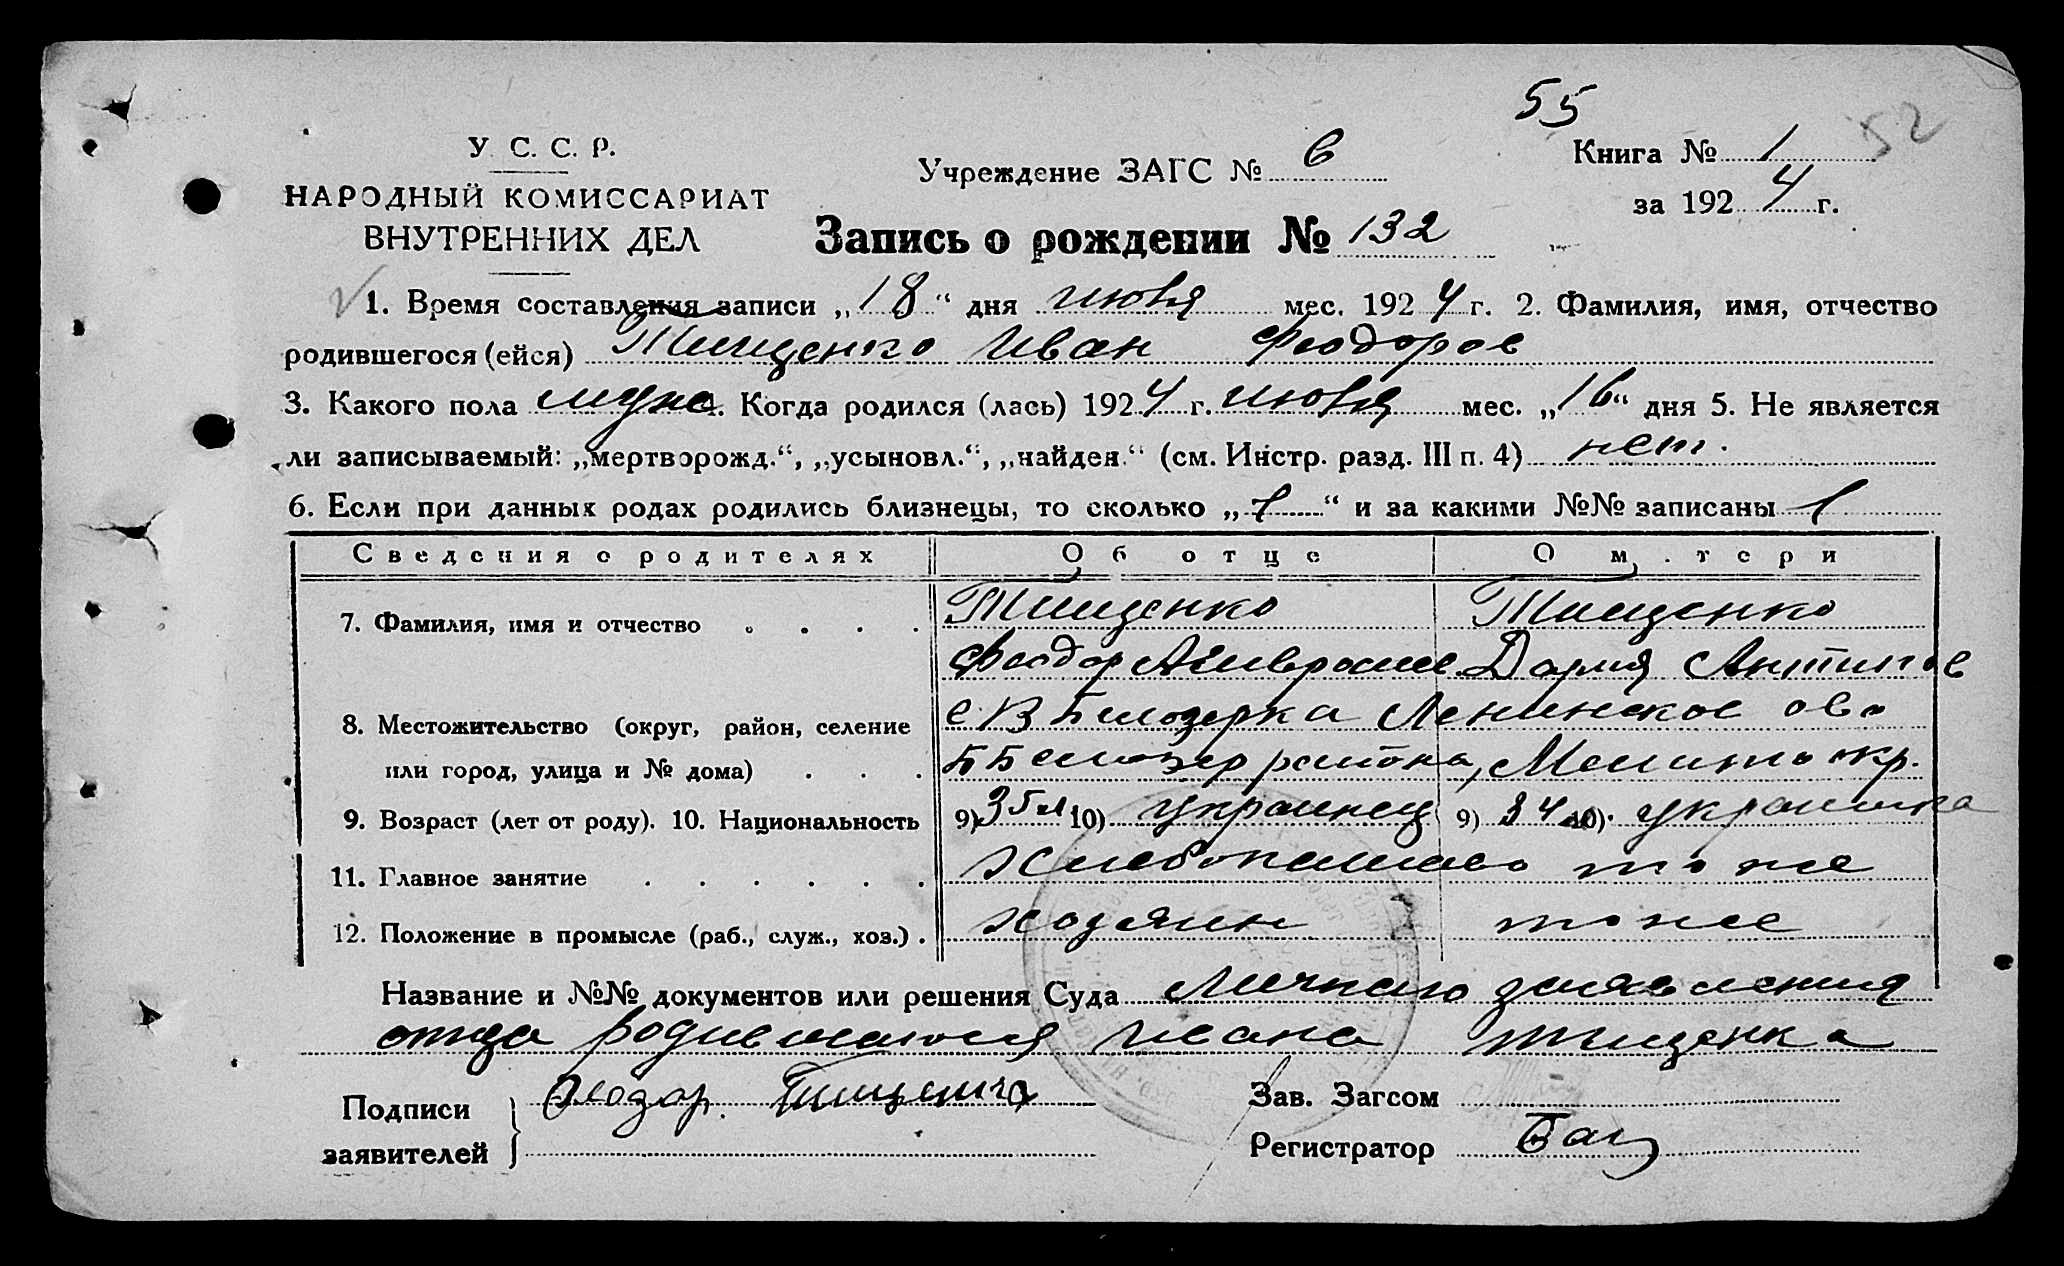 55
52
У. С. С. Р.
НАРОДНЫЙ КОМИССАРИАТ
ВНУТРЕННИХ ДЕЛ
Учреждение ЗАГС № 6
Книга № 1
за 1924 г.
Запись о рождении № 132
1. Время составления записи „18“ дня июля мес. 1924 г. 2. Фамилия, имя, отчество
родившегося (ейся) Тищенко Иван Феодоров
3. Какого пола муж 4. Когда родился (лась) 1924 г. июля мес. „16“ дня 5. Не является
ли записываемый: „мертворожд.“, „усыновл.“, „найден.“ (см. Инстр. разд. III п. 4) нет.
6. Если при данных родах родились близнецы, то сколько „ “ и за какими №№ записаны
Сведения о родителях Об отце О матери
7. Фамилия, имя и отчество Тищенко Тищенко
Феодор Дария Антипов
8. Местожительство (округ, район, селение с В Белозерка Ленинское
или город, улица и № дома) района, Мелито окр.
9. Возраст (лет от роду). 10. Национальность 9) 35 л 10) украинец 9) 34 10) украинка
11. Главное занятие то же
12. Положение в промысле (раб., служ., хоз.) хозяин то же
Название и №№ документов или решения Суда Личного заявления
отца родившагося Ивана Тищенка
Подписи заявителей Феодор. Тищенко
Зав. Загсом
Регистратор